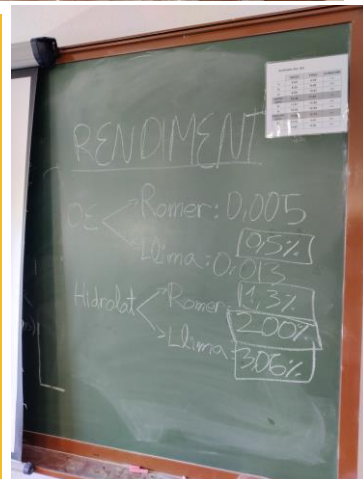 RENDIMENT
OE
Romer: 0,005
0,5%
Llima: 0,013
1,3%
Hidrolat
Romer:
200%
Llima:
306%